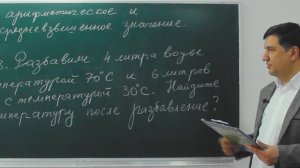 арифметическое и
средневзвешенное значение.
3. Разбавили 4 литра воды
температурой 70°С и 6 литров
с температурой 30°С. Найдите
температуру после разбавление?